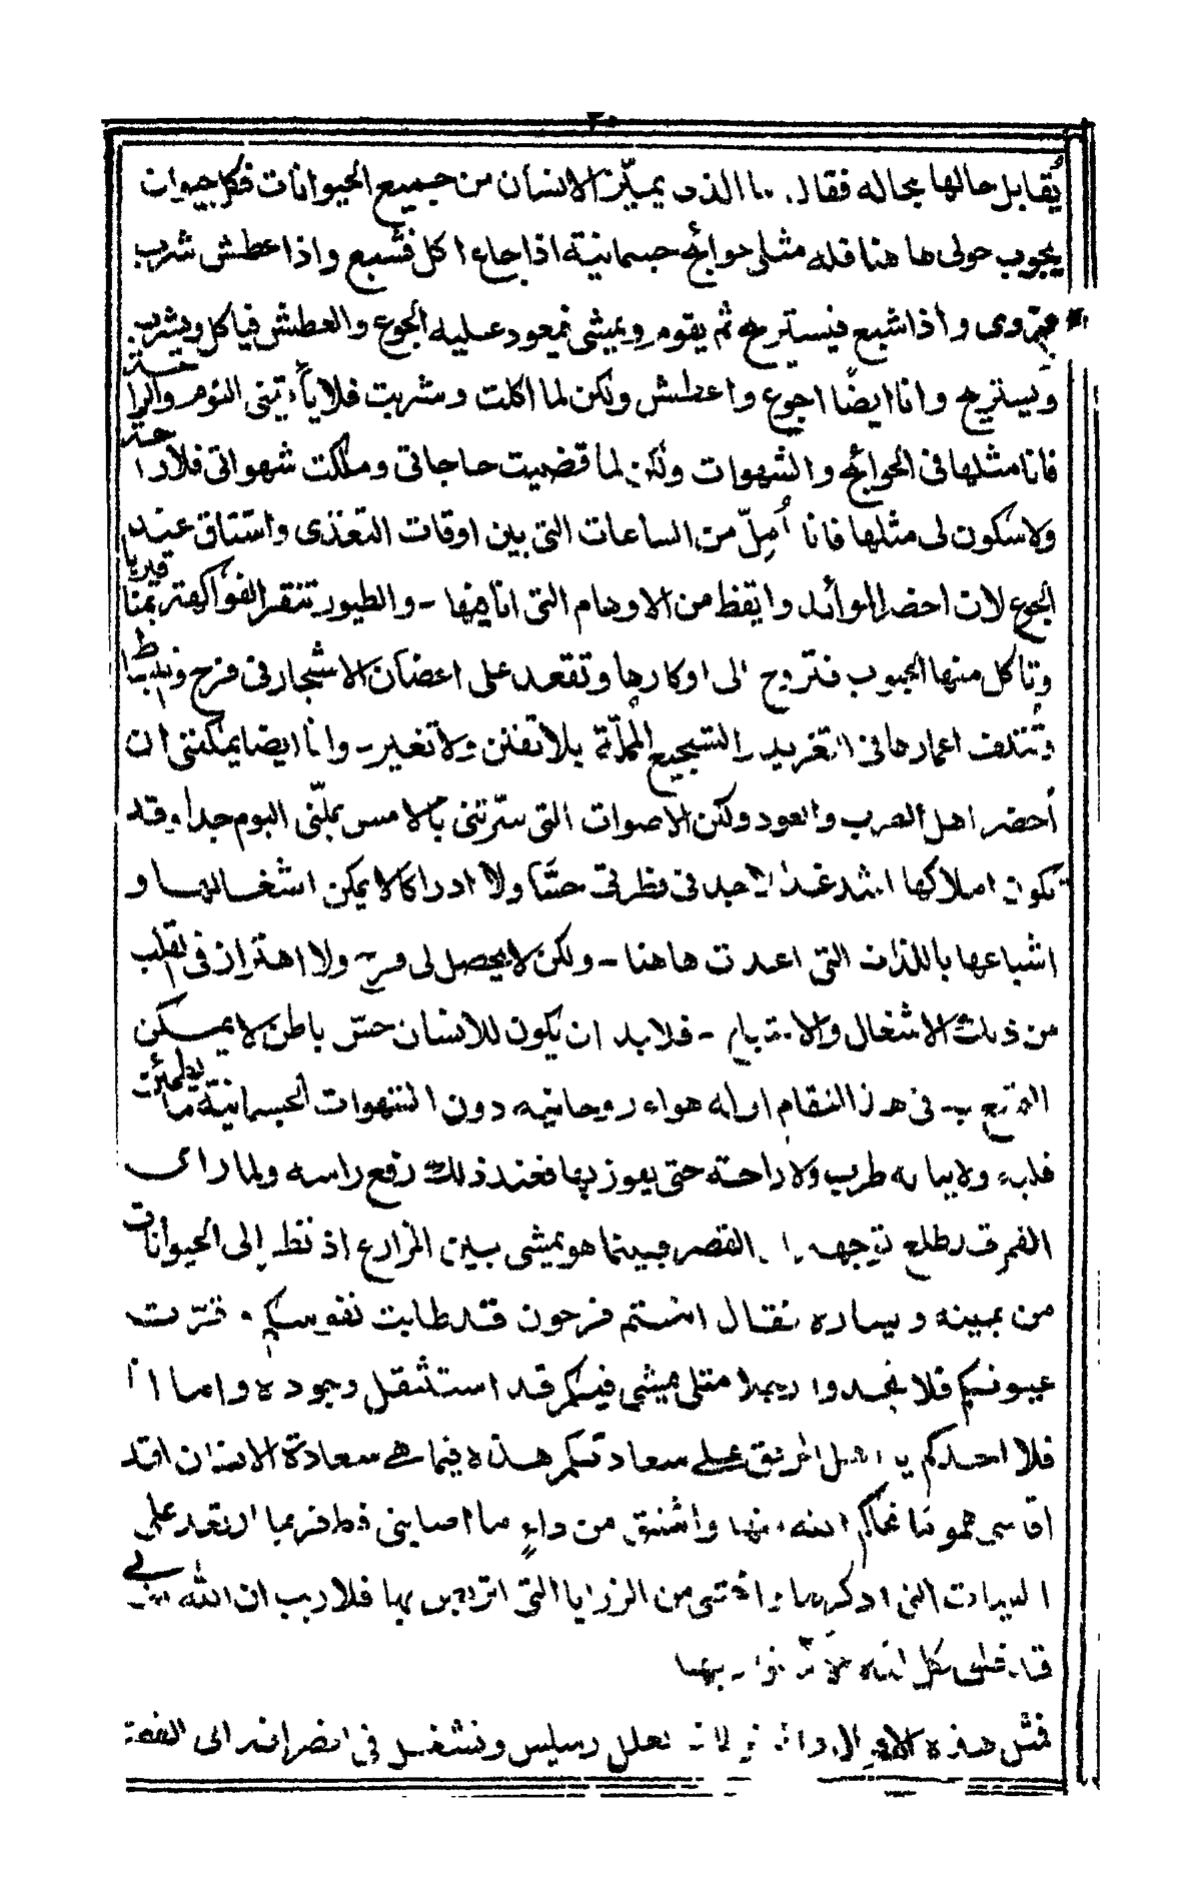 ٢٠
يُقابل حالها بحاله فقال ما الذى يميّز الانسان من جميع الحيوانات فكل حيوان
يجوب حولى ها هنا فله مثلى حوائج جسمانية اذا جاع اكل فشبع واذا عطش شرب
فروى واذا شبع فيستريح ثم يقوم ويمشى فيعود عليه الجوع والعطش فياكل ويشرب
ويستريح وانا ايضًا اجوع واعطش ولكن لما اكلت وشربت فلا يأتينى النوم والراحة
فانا مثلها فى الحوائج والشهوات ولكن لما قضيت حاجاتى وملكت شهواتى فلا راحة
ولا سكون لى مثلها فانا أمِلّ من الساعات التى بين اوقات التغذى واشتاق عند
الجوع لان احضر الموائد وايقظ من الاوهام التى انا فيها - والطيور تنقر الفواكه تمنا
وتأكل منها الحبوب فتروح الى اوكارها وتقعد على اغصان الاشجار فى فرح ونشاط
وتتلف اعمارها فى التغريد والتسجيع المملّة بلا تفنن ولا تغير - وانا ايضا يمكننى ان
أحضر اهل الضرب والعود ولكن الاصوات التى سرّتنى بالامس يملّنى اليوم جدا وقد
تكون املاكها اشد غدا لا اجد فى نظرتى حسًّا ولا ادراكا لا يمكن اشغالها و
اشباعها باللذات التى اعدت هاهنا - ولكن لا يحصل لى فرح ولا اهتزاز فى القلب
من ذلك الاشغال والاشباع - فلا بد ان يكون للانسان حسّ باطن لا يمكن
التمتع به فى هذا المقام او له هواء روحانية دون الشهوات الجسمانية ما يطمئن
قلبه ولا يباله طرب ولا راحة حتى يفوز بها فعند ذلك رفع راسه ولما راى
القمر قد طلع توجه الى القصر فبينما هو يمشى بين المزارع اذ نظر إلى الحيوانات
من يمينه ويساره فقال انتم فرحون قد طابت نفوسكم وقرّت
عيونكم فلا تحسدوا رجلا مثلى يمشى فيكم قد استثقل وجوده واما انا
فلا احسدكم يا اهل الرفق على سعادتكم هذه فما هى سعادة الانسان اقد
اقاسى هموما نجاكم الله منها واشفق من داءٍ ما اصابنى قط فربما ارتعد على
البليات التى اذكرها واختشى من الرزايا التى اتربص بها فلا ريب ان الله
قد خلق كل
فمثل هذه الاقوال تعلل رسيلس ونشغل فى انصرافه الى القصر